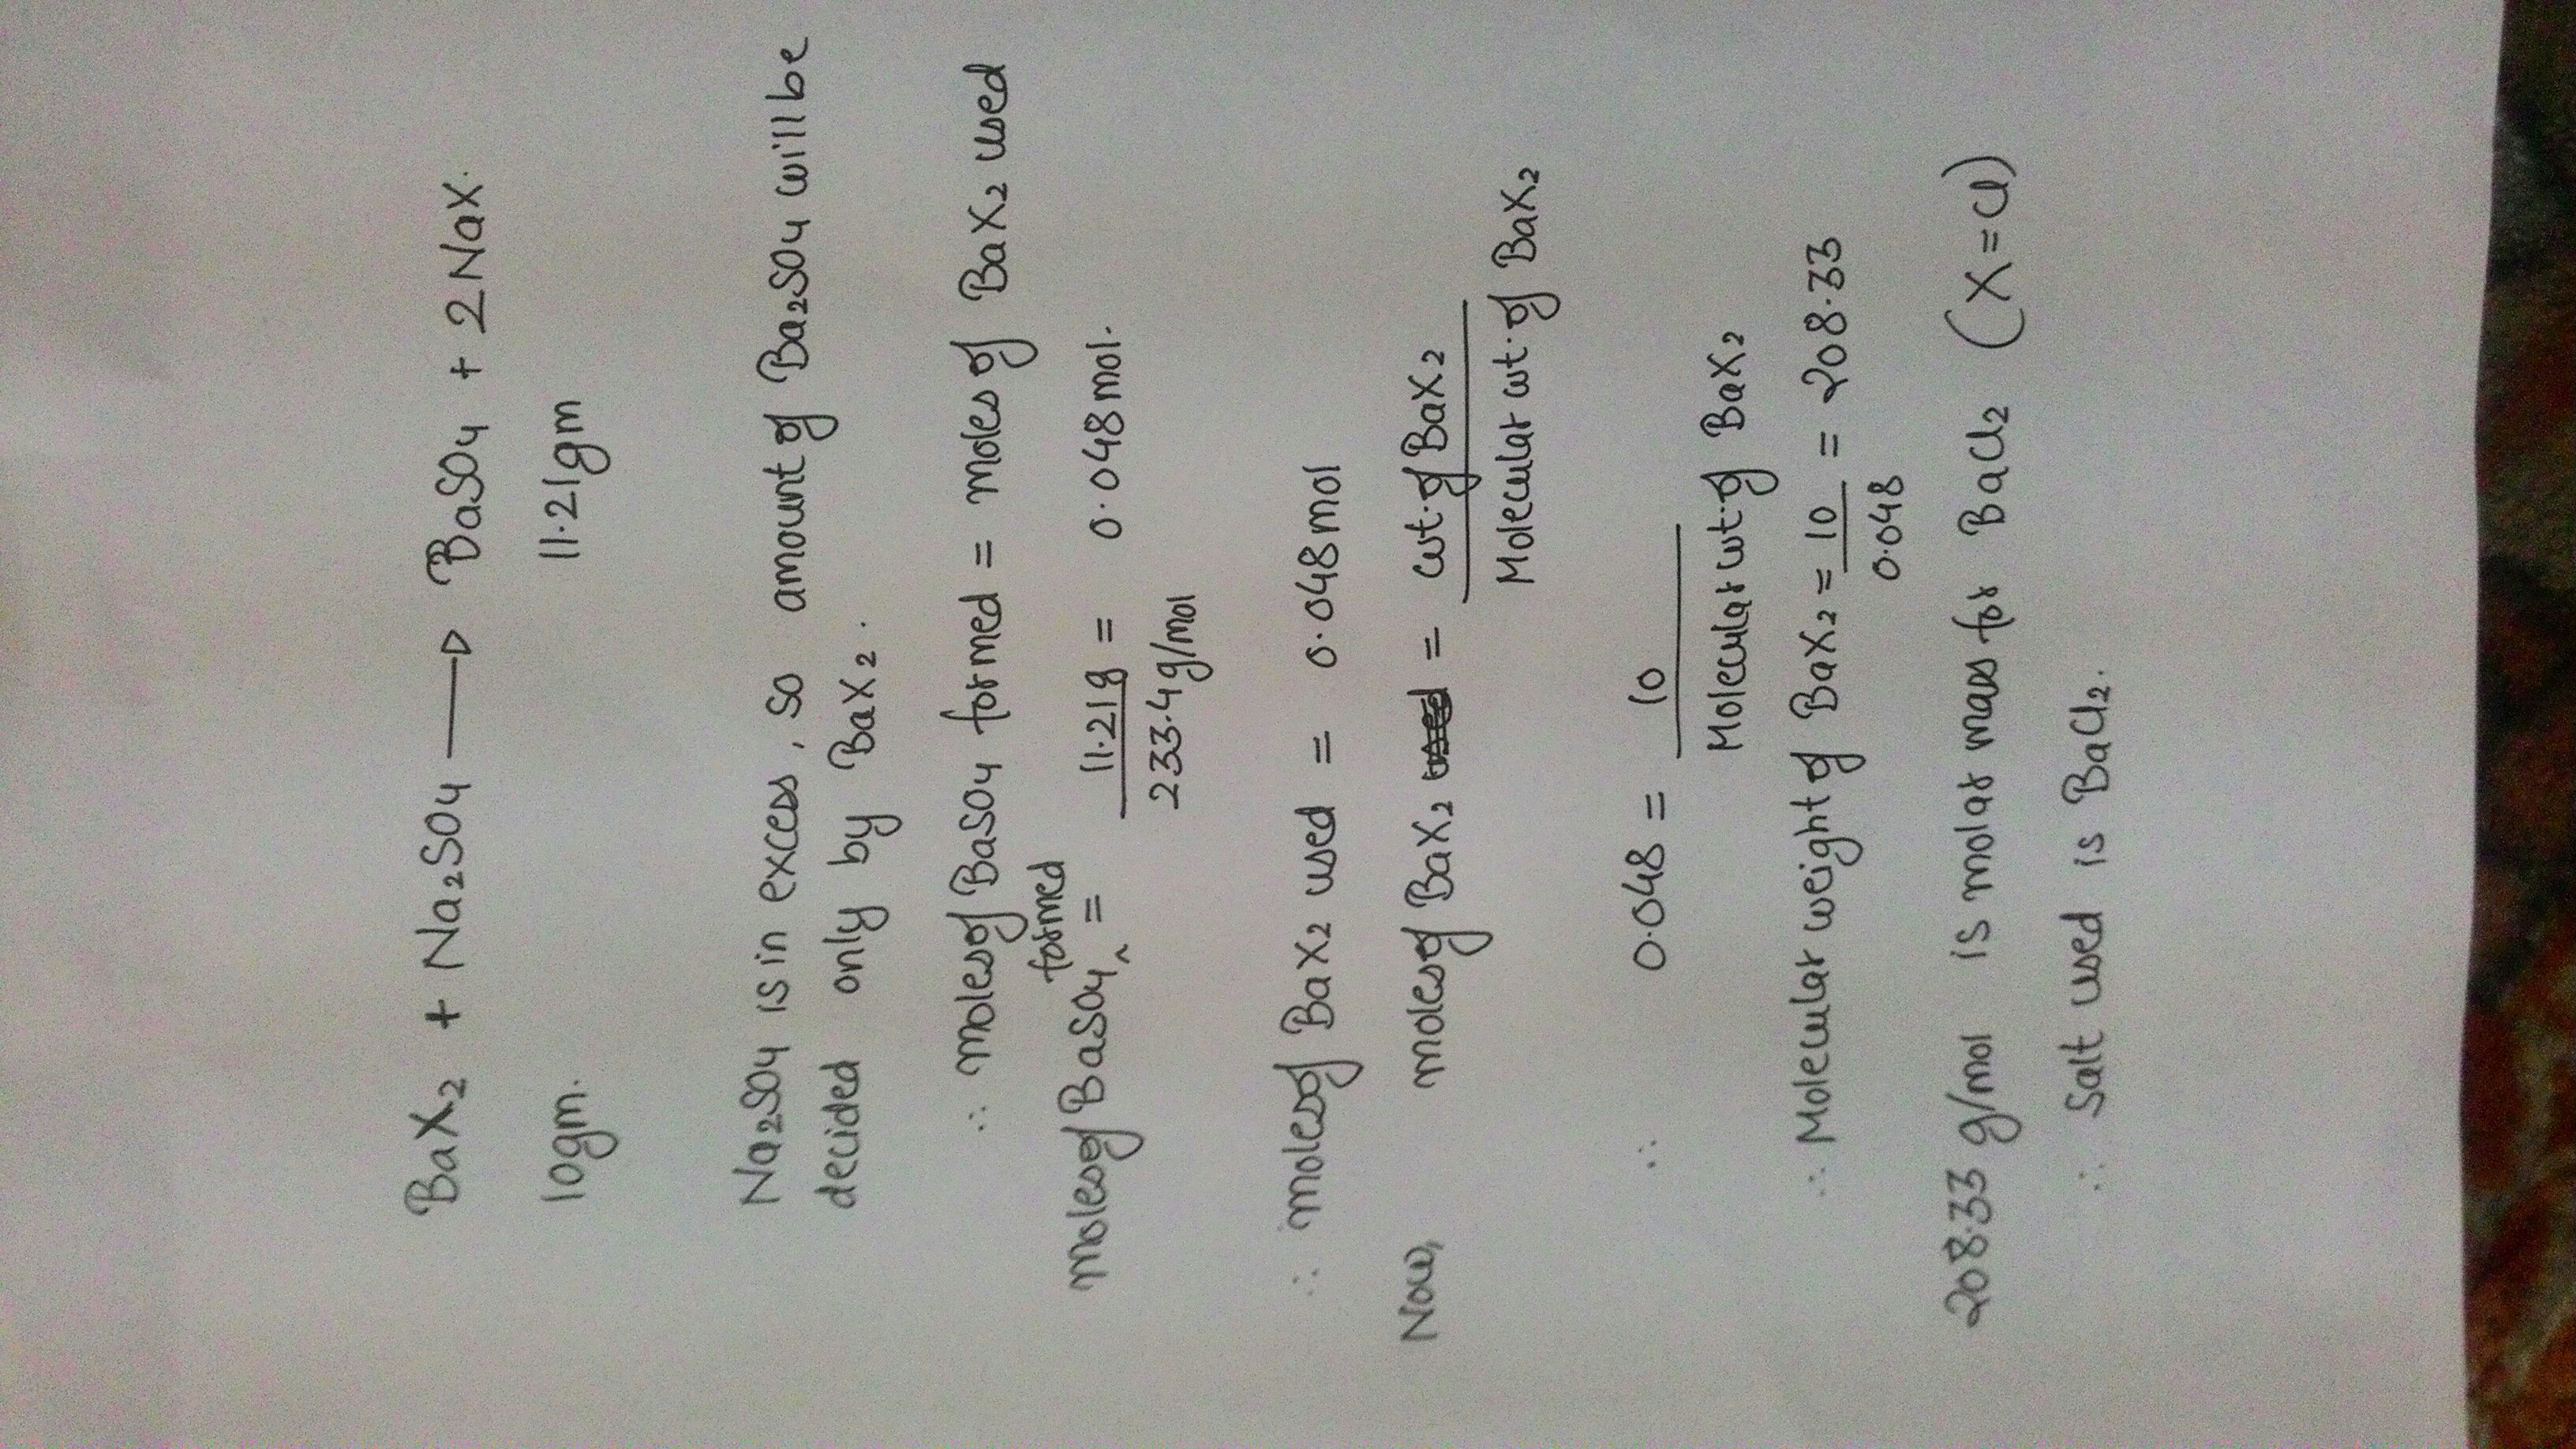 BaX₂ + Na₂SO₄ ⟶ BaSO₄ + 2NaX.
10gm. 11.21gm
Na₂SO₄ is in excess, so amount of Ba₂SO₄ will be
decided only by BaX₂.
∴ moles of BaSO₄ formed = moles of BaX₂ used
moles of BaSO₄ ^ formed = 11.21g / 233.4g/mol = 0.048mol.
∴ moles of BaX₂ used = 0.048mol
Now, moles of BaX₂ = wt. of BaX₂ / Molecular wt. of BaX₂
∴ 0.048 = 10 / Molecular wt. of BaX₂
∴ Molecular weight of BaX₂ = 10 / 0.048 = 208.33
208.33 g/mol is molar mass for BaCl₂ (X=Cl)
∴ Salt used is BaCl₂.